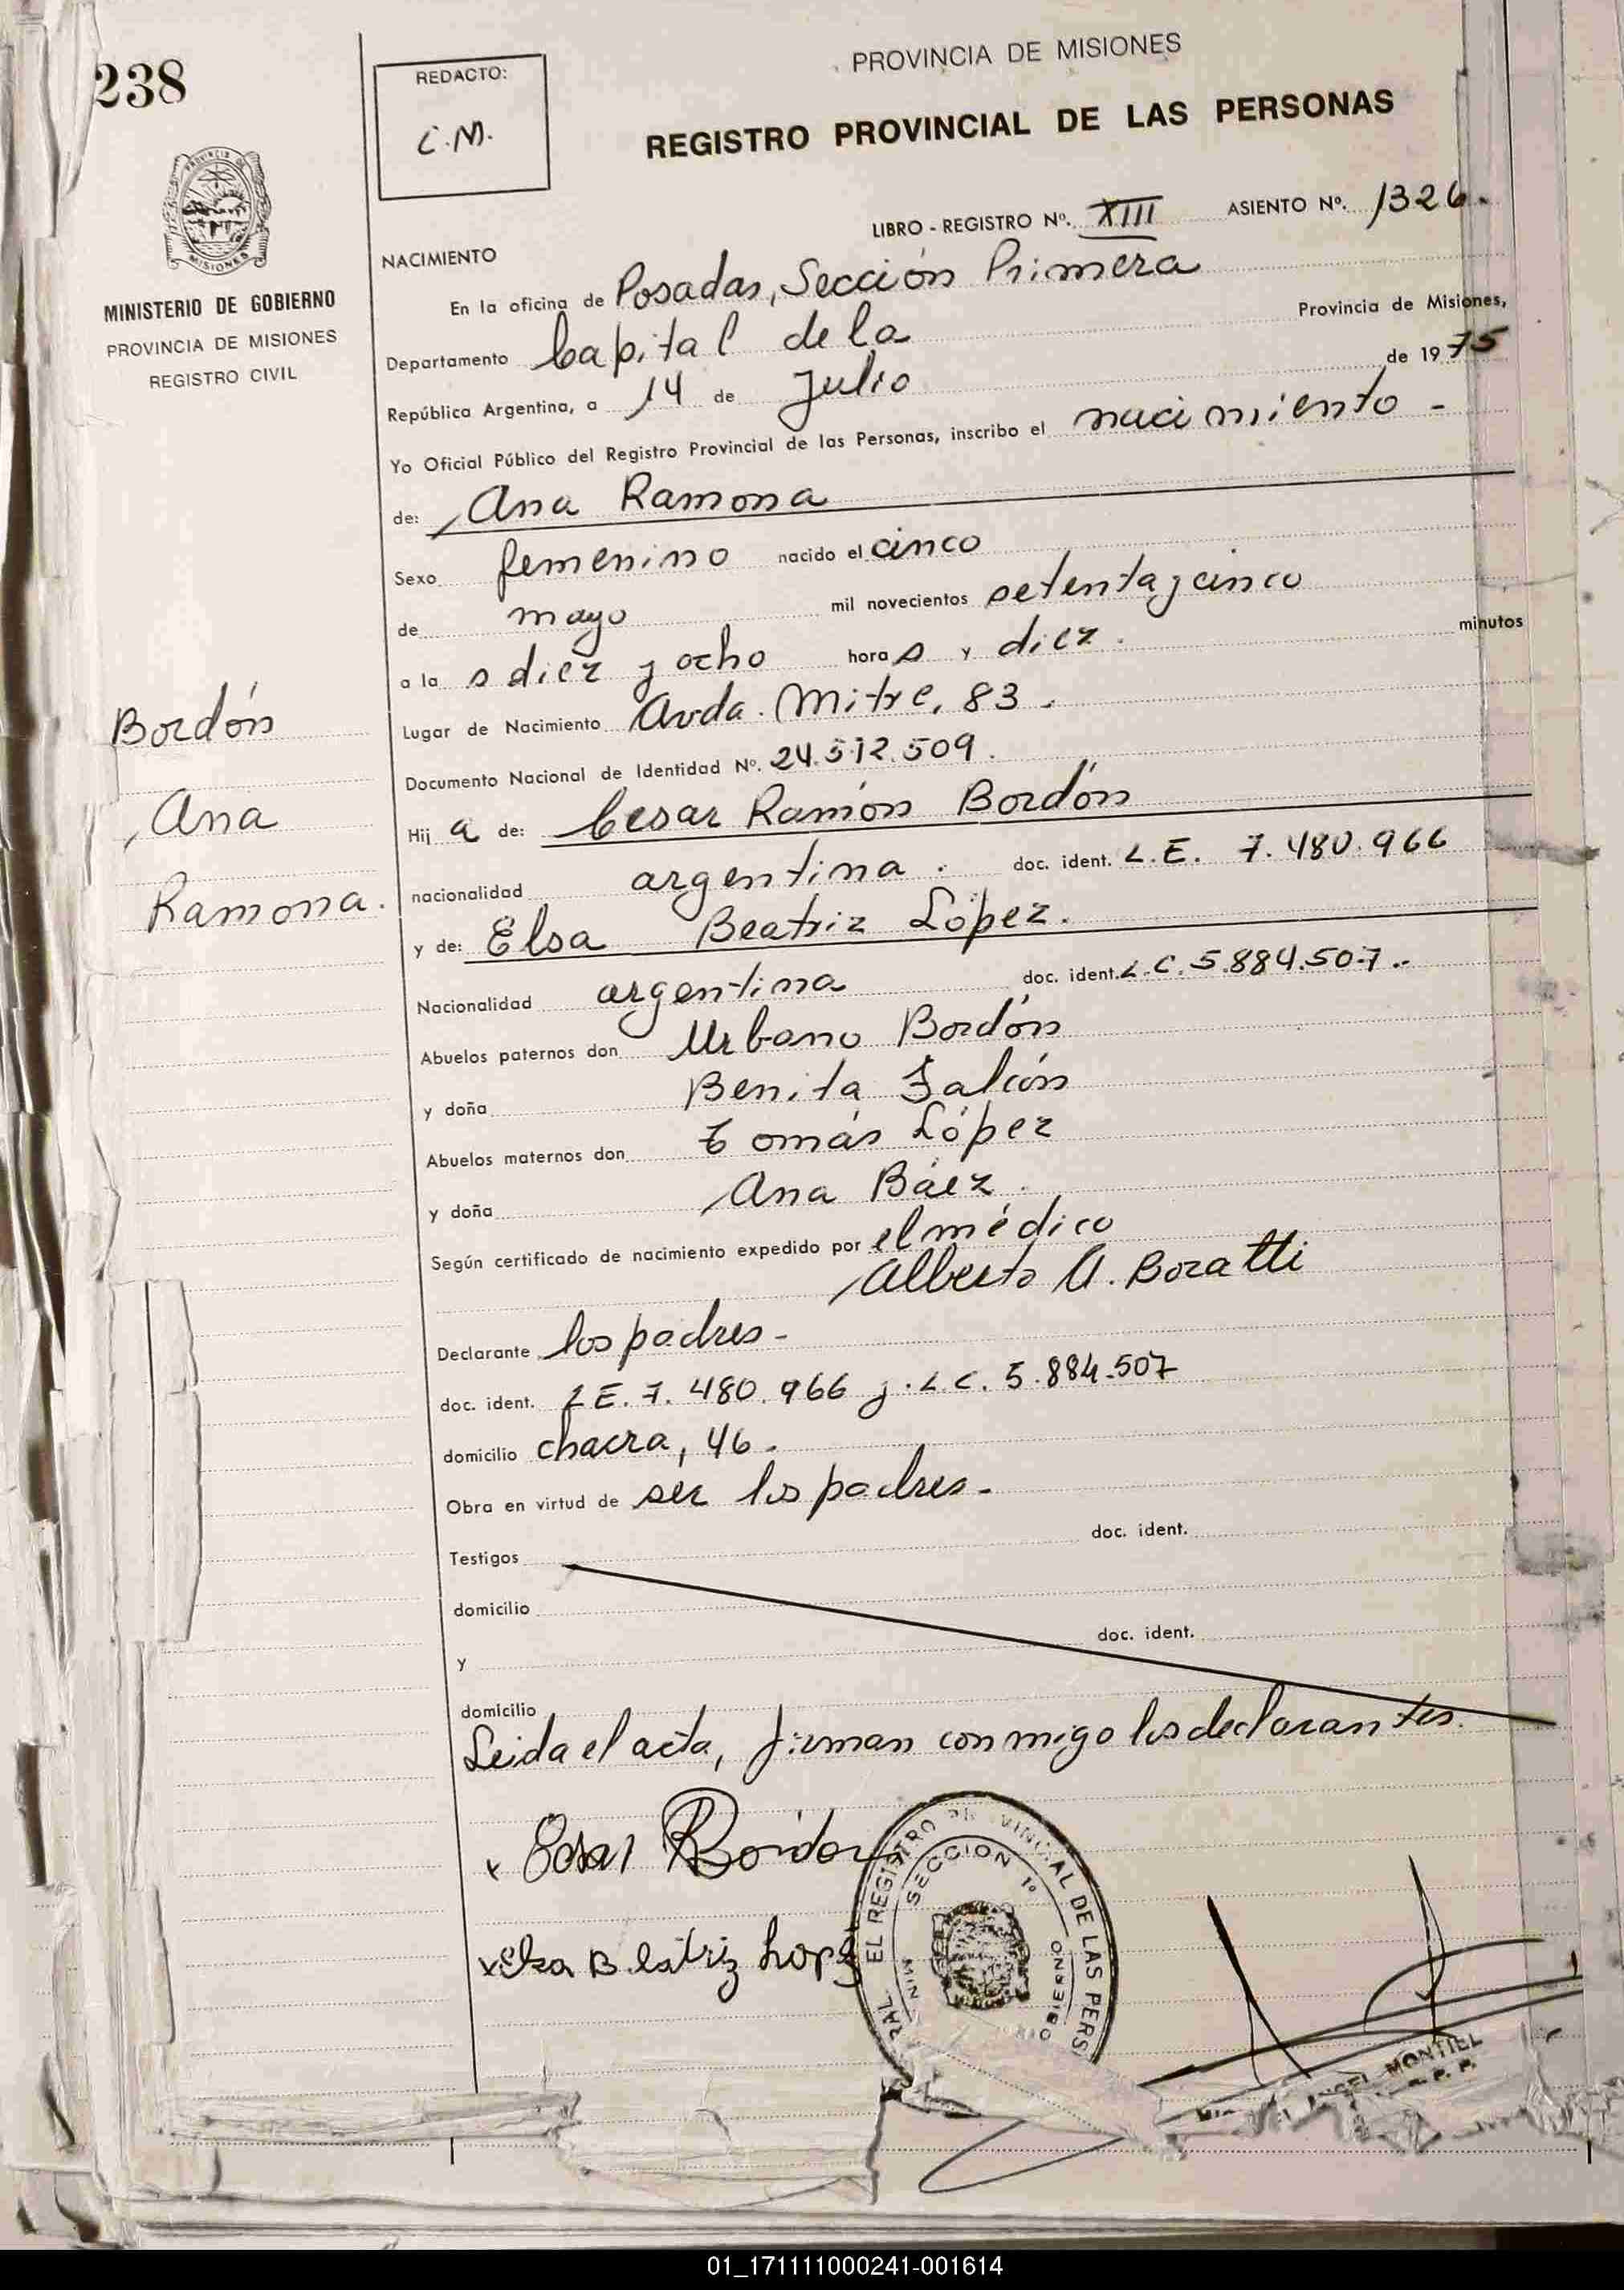 238
REDACTO:
C.M.
PROVINCIA DE MISIONES
REGISTRO PROVINCIAL DE LAS PERSONAS
PROVINCIA DE MISIONES
MINISTERIO DE GOBIERNO
PROVINCIA DE MISIONES
REGISTRO CIVIL
LIBRO - REGISTRO Nº. XIII ASIENTO Nº. 1326.
NACIMIENTO
En la oficina de Posadas, Sección Primera
Departamento Capital de la Provincia de Misiones,
República Argentina, a 14 de Julio de 1975
Yo Oficial Público del Registro Provincial de las Personas, inscribo el nacimiento -
de: Ana Ramona
Sexo femenino nacido el cinco
de mayo mil novecientos setenta y cinco
a la s diez y ocho hora s y diez. minutos
Lugar de Nacimiento Avda. Mitre, 83.
Documento Nacional de Identidad Nº. 24.512.509.
Hij a de: Cesar Ramón Bordón
nacionalidad argentina. doc. ident. L.E. 7.480.966
y de: Elsa Beatriz López.
Nacionalidad argentina doc. ident. L.C. 5.884.507.-
Abuelos paternos don Urbano Bordón
y doña Benita Falcón
Abuelos maternos don Tomás López
y doña Ana Báez.
Según certificado de nacimiento expedido por el médico
Alberto A. Boratti
Declarante los padres-
doc. ident. L E. 7.480.966 y. L.C. 5.884.507
domicilio chacra, 46.
Obra en virtud de ser los padres-
Testigos doc. ident.
domicilio
y doc. ident.
domicilio
Leida el acta, firman conmigo los declarantes.
Bordón
Ana
Ramona.
x Cesar R Bordon
x Elsa Beatriz Lopez
EL REGISTRO PROVINCIAL DE LAS PERS
SECCION 1º
MIN GOBIERNO
ANGEL MONTIEL
01_171111000241-001614